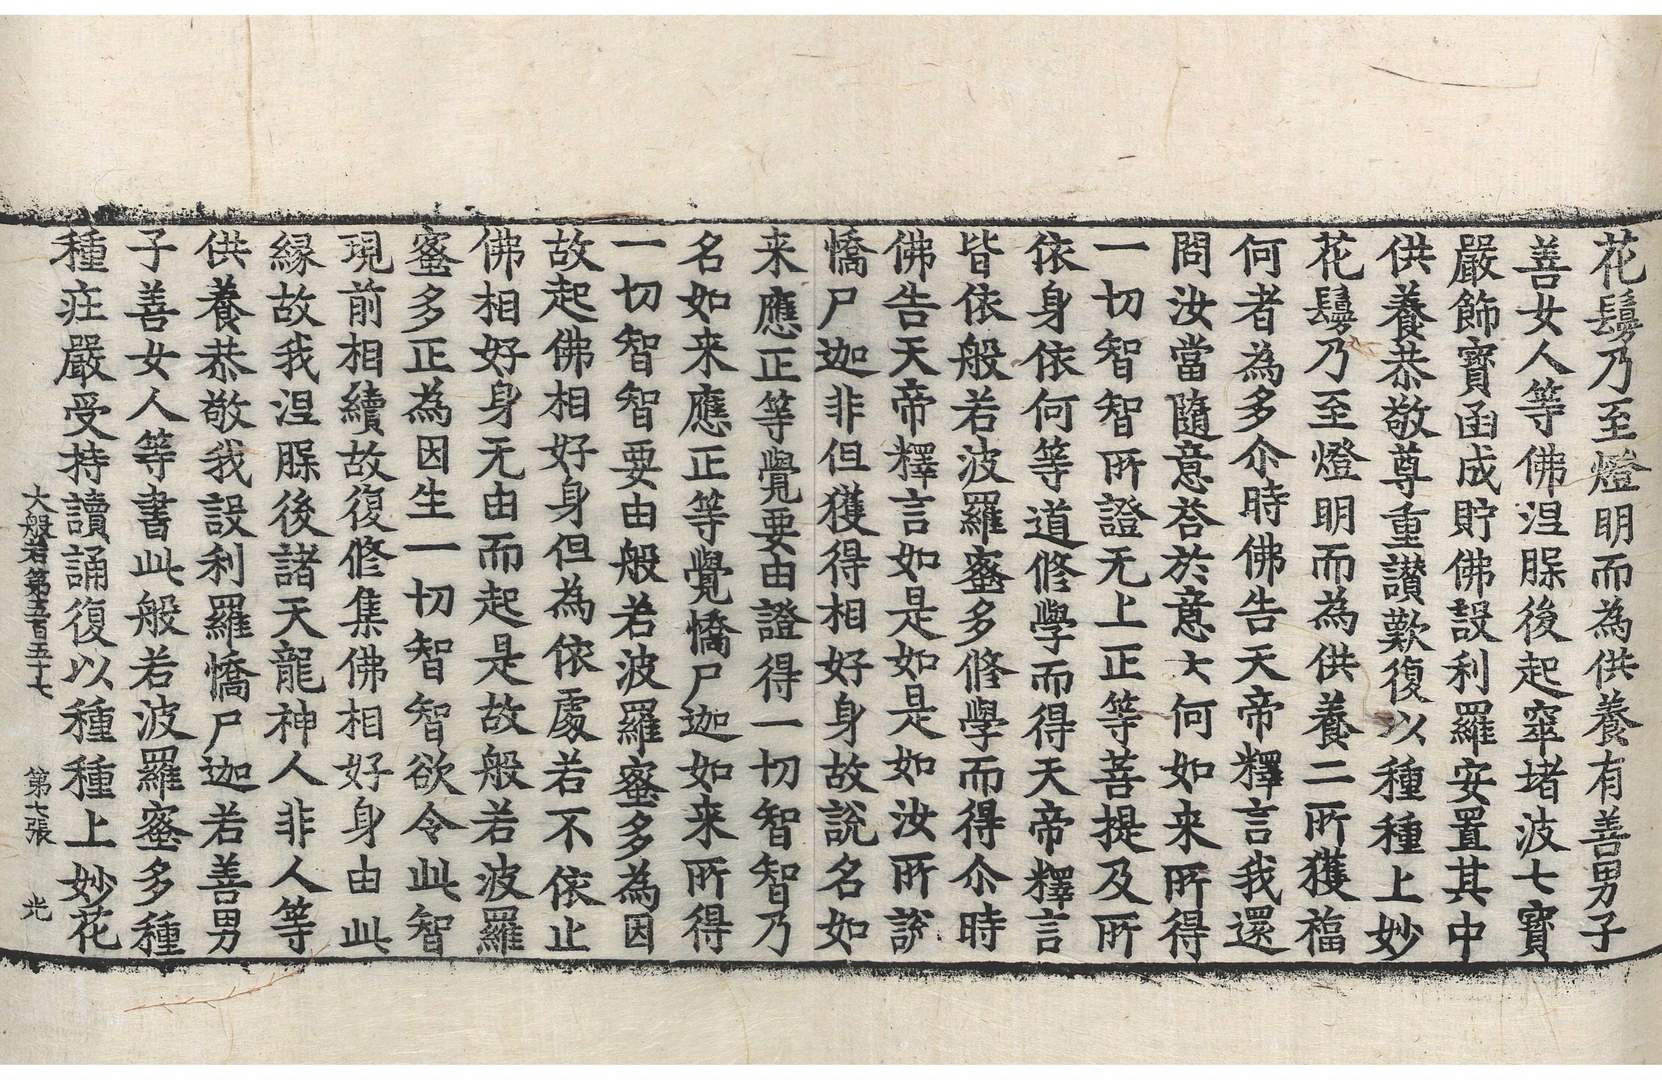 花鬘乃至燈明而為供養有善男子
善女人等佛涅脲後起窣堵波七寳
嚴飾寳函成貯佛設利羅安置其中
供養恭敬尊重讃歎復以種種上妙
花鬘乃至燈明而為供養二所獲福
何者為多尒時佛告天帝釋言我還
問汝當隨意荅於意云何如来所得
一切智智所證无上正等菩提及所
依身依何等道修學而得天帝釋言
皆依般若波羅蜜多修學而得尒時
佛告天帝釋言如是如是如汝所說
憍尸迦非但獲得相好身故說名如
来應正等覺要由證得一切智智乃
名如来應正等覺憍尸迦如来所得
一切智智要由般若波羅蜜多為因
故起佛相好身但為依處若不依止
佛相好身无由而起是故般若波羅
蜜多正為因生一切智智欲令此智
現前相續故復修集佛相好身由此
緣故我涅脲後諸天龍神人非人等
供養恭敬我設利羅憍尸迦若善男
子善女人等書此般若波羅蜜多種
種庄嚴受持讀誦復以種種上妙花
大般若第五百五十七 第七張 光